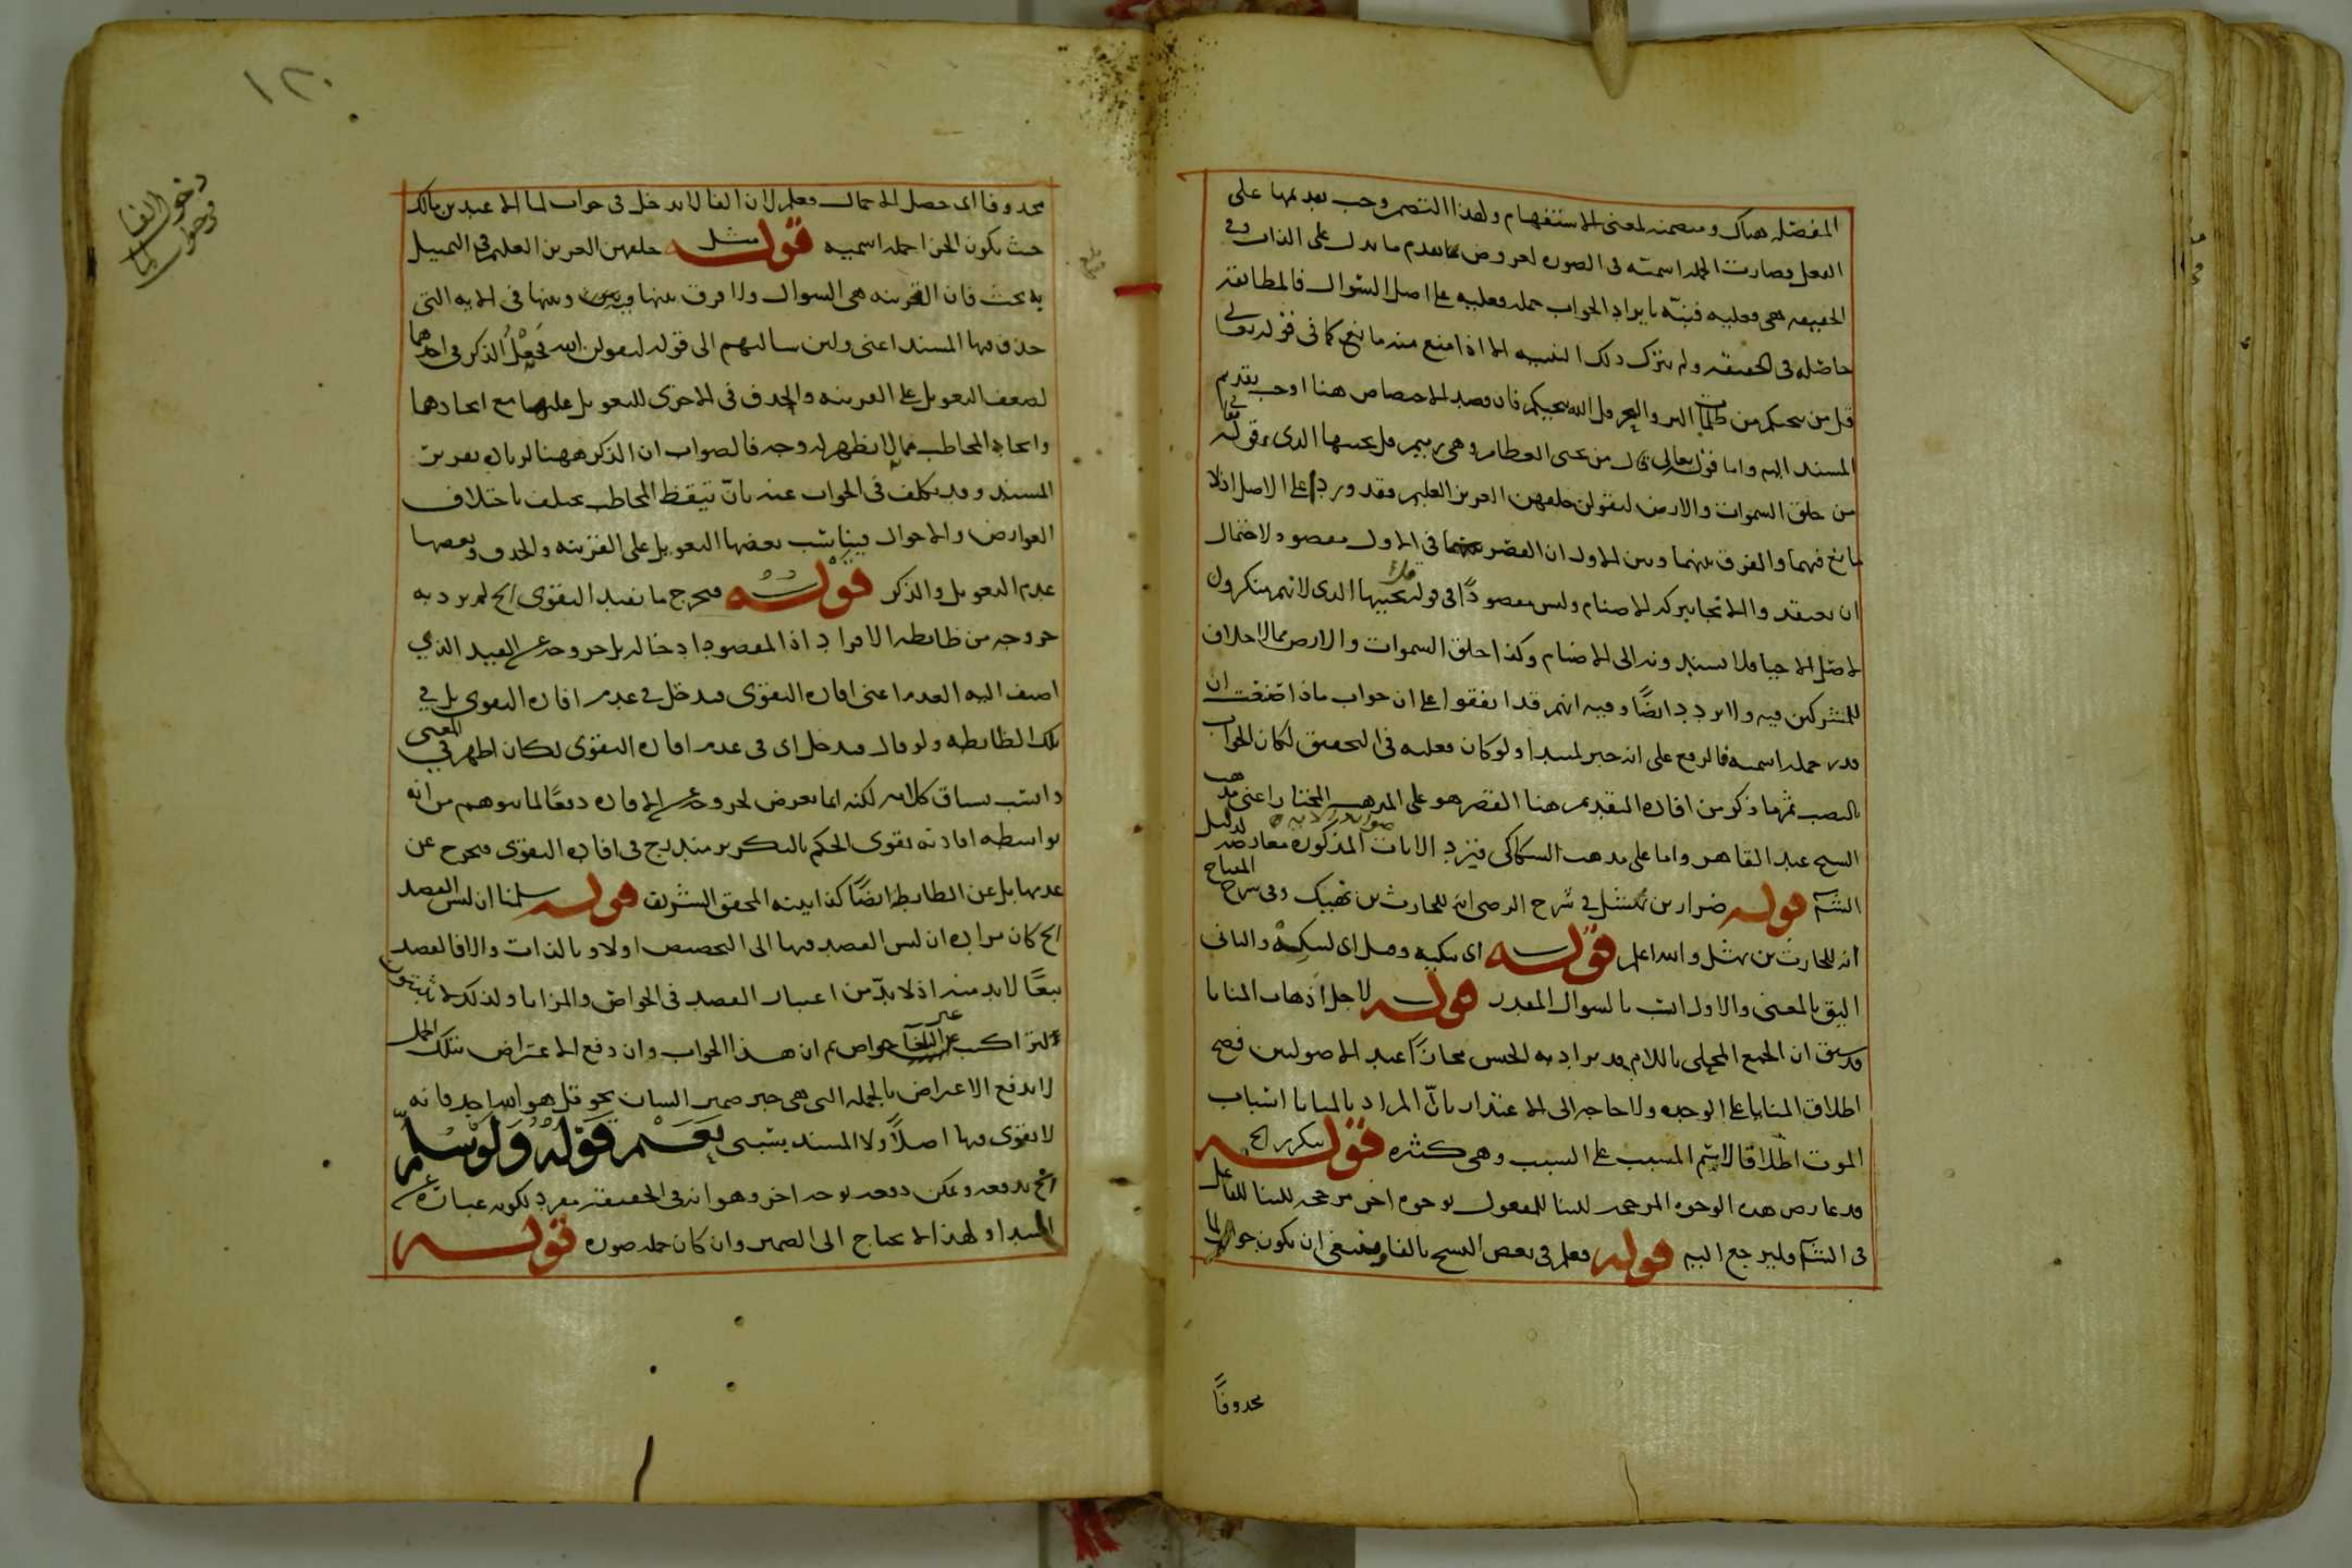 المفصلة هناك ومتضمنة لمعنى الاستفهام ولهذا التضمن وجب تقديمها على
الفعل وصارت الجملة اسمية فى الصورة لعروض تقدم ما يدل على الذات وفى
الحقيقة هى فعلية فنبّه بايراد الجواب جملة فعلية على اصل السؤال فالمطابقة
حاصلة فى الحقيقة ولم يترك ذلك التنبيه الا اذا منع منه مانع كما فى قوله تعالى
قل من ينجيكم من ظلمات البر والبحر قل الله ينجيكم فان قصد الاختصاص هنا اوجب تقديم
المسند اليه واما قوله تعالى قال من يحيى العظام وهى رميم قل يحييها الذى وقوله تعالى
من خلق السموات والارض ليقولن خلقهن العزيز العليم فقد ورد على الاصل اذ لا
مانع فيهما والفرق بينهما وبين الاول ان القصر فى الاول مقصود لاحتمال
ان يعتقد والانجا بركة الاصنام وليس مقصودًا فى قوله قل يحييها الذى لانهم ينكرون
اصل الاحيا فلا يسندونه الى الاصنام وكذا خلق السموات والارض مما لا خلاف
للمشركين فيه ولا تردد ايضًا وفيه انهم قد اتفقوا على ان جواب ماذا صنعت ان
قدر جملة اسمية فالرفع على انه خبر لمبتدا ولو كان فعلية فى التحقيق لكان الجواب
بالنصب ثم ما ذكر من افادة التقديم هنا القصر هو على المذهب المختار اعنى مذهب
الشيخ عبد القاهر واما على مذهب السكاكى فيرد الايات المذكورة معارضة لدليل
الشم قوله ضرار بن نهشل فى شرح الرضى انه للحارث بن نهيك وفى شرح المفتاح
انه للحارث بن نهشل والله اعلم قوله اى يبكيه وقيل اى ليبكه والثانى
اليق بالمعنى والاول انسب بالسوال المقدر قوله لاجل اذهاب المنايا
قد سبق ان الجمع المحلى باللام قد يراد به الجنس مجازًا عند الاصوليين فصح
اطلاق المنايا على الوحدة ولا حاجة الى الاعتذار بانّ المراد بالمنايا اسباب
الموت اطلاقا لاسم المسبب على السبب وهى كثيرة قوله بتكرر الخ
قد عارض هذه الوجوه المرجحة للبنا للمفعول بوجوه اخر مرجحة للبنا للفاعل
فى الشم فليرجع اليه قوله فعلم فى بعض النسخ بالفا وينبغى ان يكون جواب لما
محذوفًا
١٢٠
دخول الفا
فى جواب لما
محذوفا اى حصل الاجمال فعلم لان الفا لا يدخل فى جواب لما الا عند بن مالك
حيث يكون الجزا جملة اسمية قوله مثل خلقهن العزيز العليم فى التمثيل
به بحث فان القرينة هى السوال ولا فرق بينها وبينها فى الاية التى
حذف فيها المسند اعنى ولئن سالتهم الى قوله ليقولن الله فجعل الذكر فى احدهما
لضعف التعويل على القرينة والحذف فى الاخرى للتعويل عليها مع اتحادهما
واتحاد المخاطب مما لا يظهر له وجه فالصواب ان الذكر ههنا لزيادة تقرير
المسند وقد يكلف فى الجواب عنه بانّ تيقظ المخاطب يختلف باختلاف
العوارض والاحوال فيناسب بعضها التعويل على القرينة والحذف وبعضها
عدم التعويل والذكر قوله فيخرج ما يفيد التقوى الخ لم يرد به
خروجه من ضابطة الافراد اذ المقصود ادخاله بل خروجه عن القيد الذى
اضيف اليه العدم اعنى افادة التقوى فيدخل فى عدم افادة التقوى بل فى
تلك الضابطة ولو قال فيدخل اى فى عدم افادة التقوى لكان اظهر فى المعنى
وانسب بسياق كلامه لكنه انما تعرض لخروجه عن الافادة دفعًا لما يتوهم من انه
بواسطة افادته تقوى الحكم بالتكرير مندرج فى افادة التقوى فيخرج عن
عدمها بل عن الضابطة ايضًا كذا بينه المحقق الشريف قوله سلمنا ان ليس القصد
الخ كان مراده ان ليس القصد فيها الى التخصيص اولا وبالذات والا فالقصد
تبعًا لا بد منه اذ لا بدّ من اعتبار القصد فى الخواص والمزايا ولذلك
لتراكيب غير البلغا خواص ثم ان هذا الجواب وان دفع الاعتراض بتلك الجمل
لا يدفع الاعتراض بالجملة التى هى خبر ضمير الشان نحو قل هو الله احد فانه
لا تقوى فيها اصلاً ولا المسند بسببى نعم قوله ولو سلم
الخ يدفعه ويمكن دفعه بوجه اخر وهو انه فى الحقيقة مفرد لكونه عبارة عن
المبتدا ولهذا لا يحتاج الى الضمير وان كان جملة صورة قوله